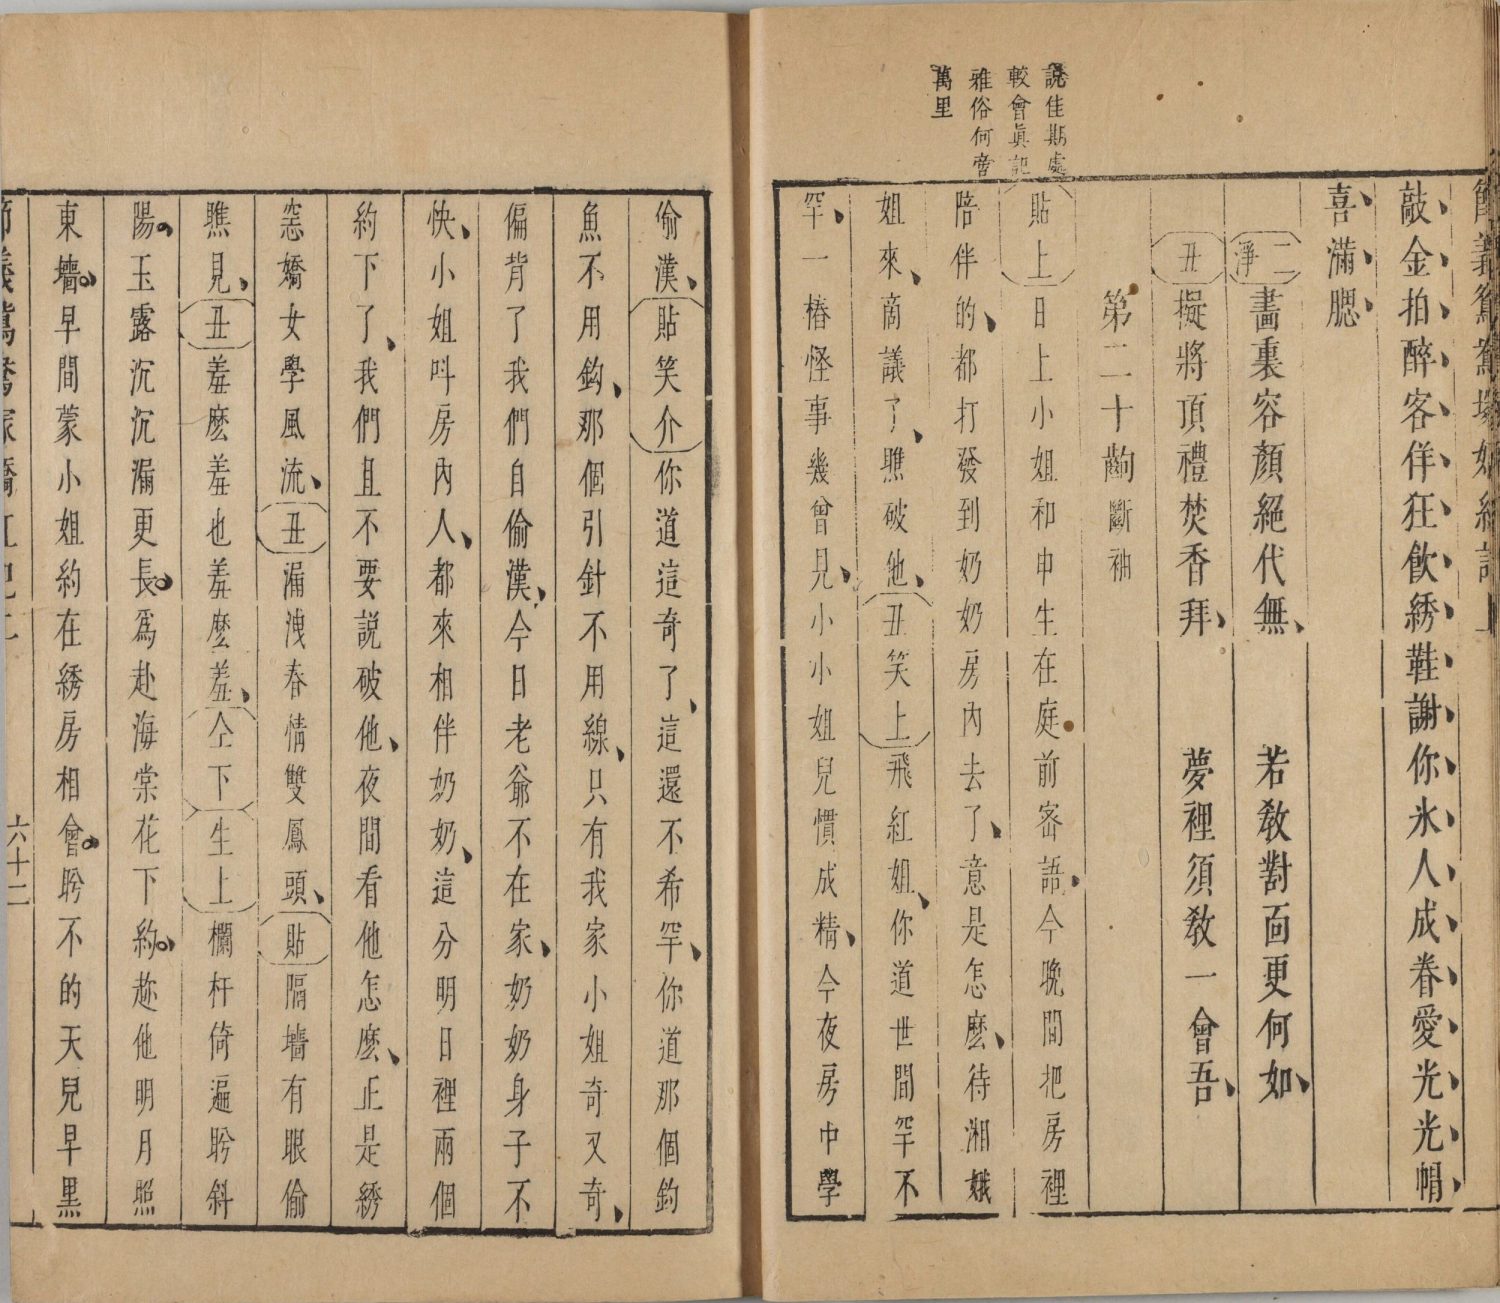 節義鴛鴦塚嬌紅記上
敲金拍醉客佯狂飲綉鞋謝你氷人成眷愛光光帽
喜滿腮
二淨畵裏容顏絕代無若敎對面更何如
丑擬將頂禮焚香拜夢裡須敎一會吾
第二十齣斷袖
説佳期處
較會眞記
雅俗何啻
萬里
貼上日上小姐和申生在庭前密語今晚間把房裡
陪伴的都打發到奶奶房內去了意是怎麽待湘娥
姐來商議了瞧破他丑笑上飛紅姐你道世間罕不
罕一樁怪事幾曾見小小姐兒慣成精今夜房中學
偷漢貼笑介你道這奇了這還不希罕你道那個鈎
魚不用鈎那個引針不用線只有我家小姐奇又奇
偏背了我們自偷漢今日老爺不在家奶奶身子不
快小姐呌房內人都來相伴奶奶這分明日裡兩個
約下了我們且不要説破他夜間看他怎麽正是綉
窓嬌女學風流丑漏洩春情雙鳳頭貼隔墻有眼偷
瞧見丑羞麽羞也羞麽羞仝下生上欄杆倚遍盼斜
陽玉露沉沉漏更長爲赴海棠花下約趂他明月照
東墻早間蒙小姐約在綉房相會盼不的天兒早黑
節義鴛鴦塚嬌紅記上 六十二